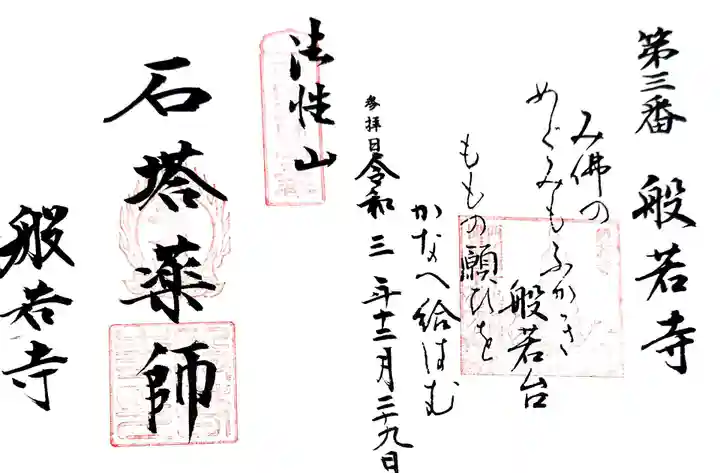 第三番 般若寺
み佛の
めぐみもふかき
般若台
もゝの願ひを
かなへ給はむ
参拝日 令和三年十二月二十九日
法性山
石塔薬師
般若寺